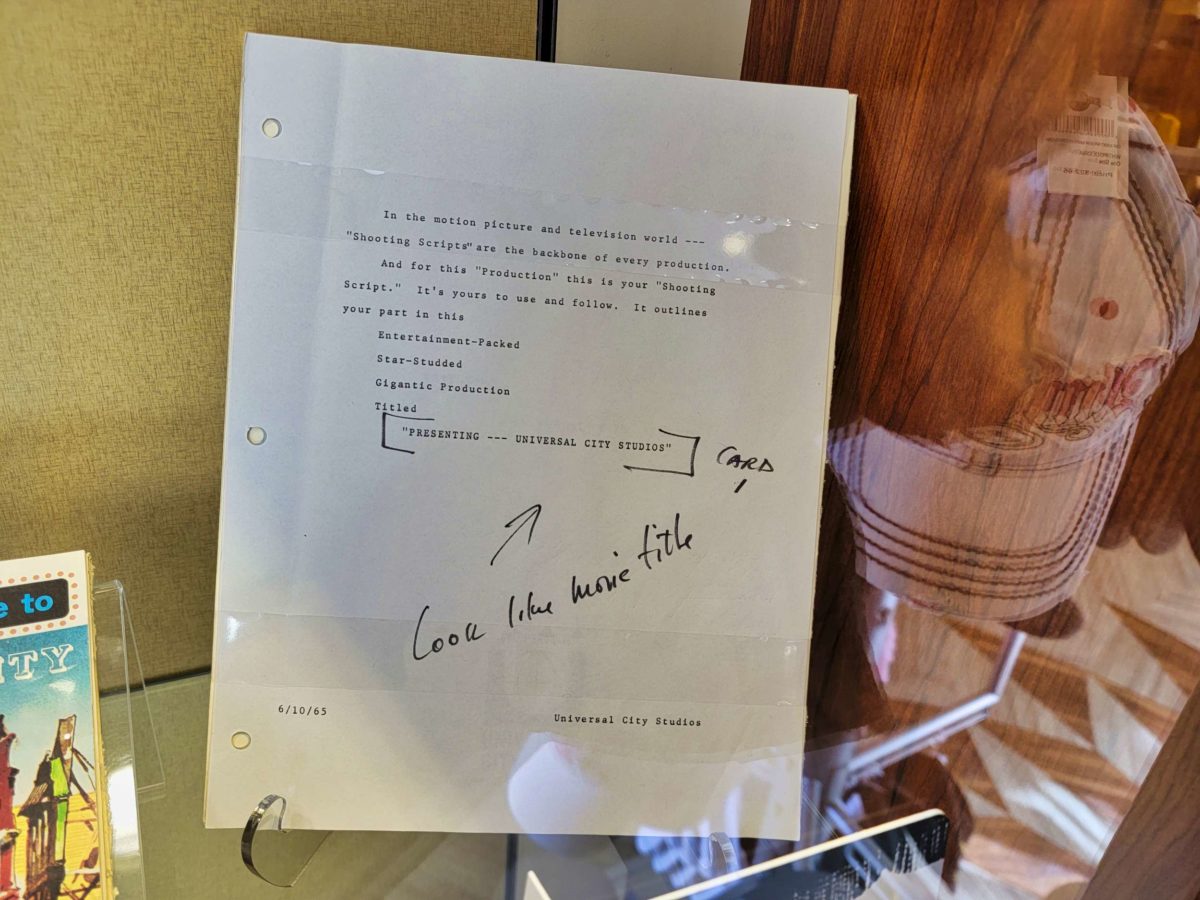 In the motion picture and television world ---
"Shooting Scripts" are the backbone of every production.
And for this "Production" this is your "Shooting
Script." It's yours to use and follow. It outlines
your part in this
Entertainment-Packed
Star-Studded
Gigantic Production
Titled
"PRESENTING --- UNIVERSAL CITY STUDIOS"
CARD
Look like movie title
6/10/65
Universal City Studios
e to
ITY